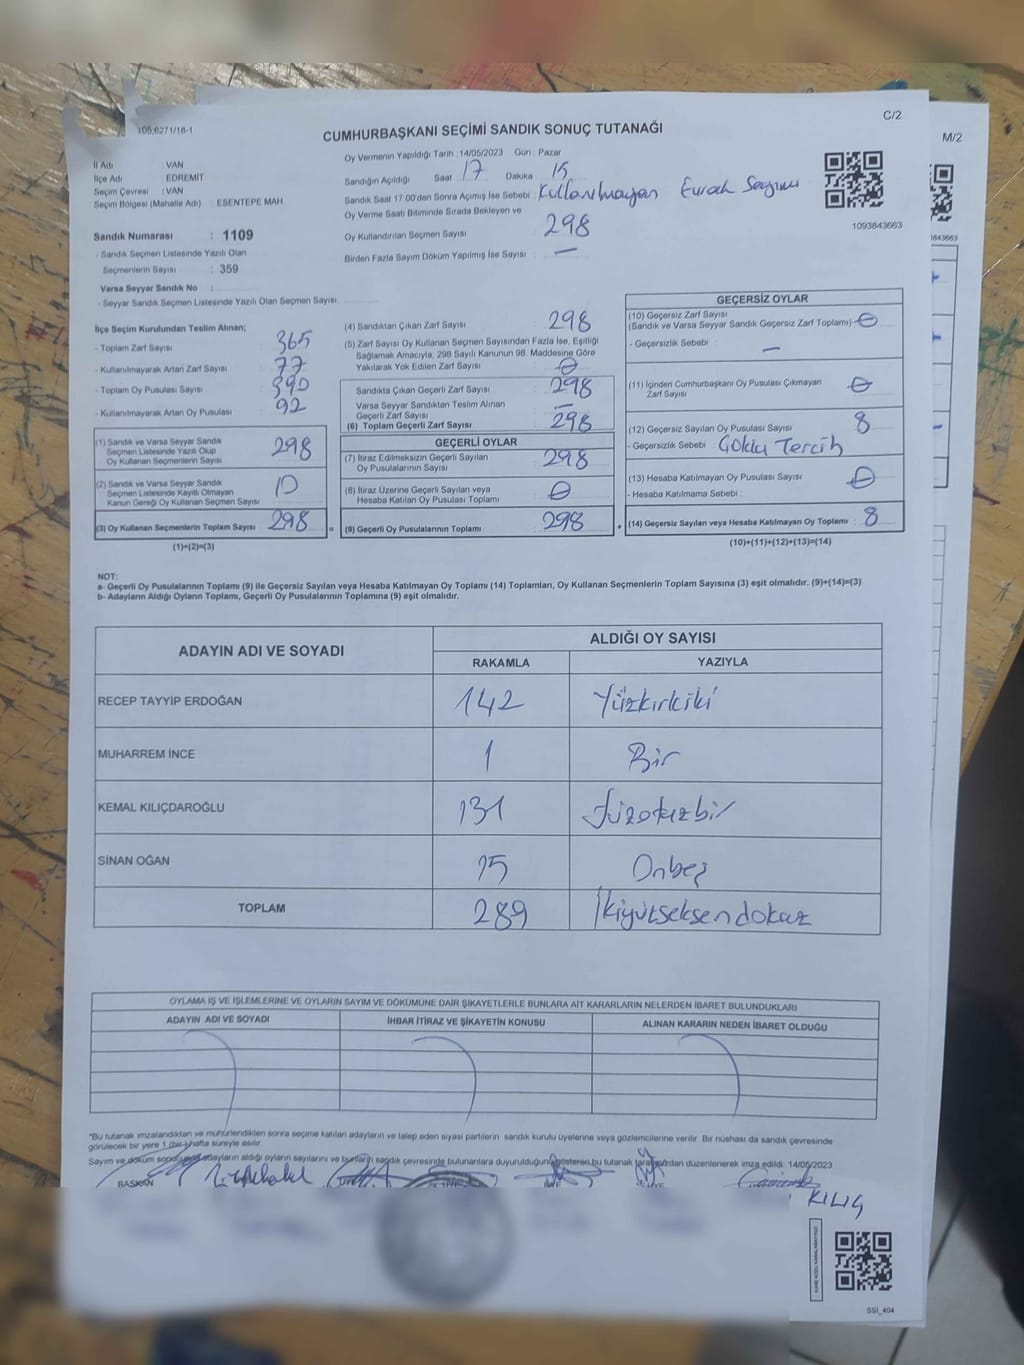 C/2
M/2
105.6271/18-1
CUMHURBAŞKANI SEÇİMİ SANDIK SONUÇ TUTANAĞI
İl Adı : VAN
İlçe Adı : EDREMİT
Seçim Çevresi : VAN
Seçim Bölgesi (Mahalle Adı) : ESENTEPE MAH.
Sandık Numarası : 1109
- Sandık Seçmen Listesinde Yazılı Olan
Seçmenlerin Sayısı : 359
Varsa Seyyar Sandık No :
- Seyyar Sandık Seçmen Listesinde Yazılı Olan Seçmen Sayısı
Oy Vermenin Yapıldığı Tarih : 14/05/2023 Gün : Pazar
Sandığın Açıldığı Saat 17 Dakika 15
Sandık Saat 17.00'den Sonra Açımış İse Sebebi : Kullanılmayan Evrak Sayımı
Oy Verme Saati Bitiminde Sırada Bekleyen ve
Oy Kullandırılan Seçmen Sayısı 298
Birden Fazla Sayım Döküm Yapılmış İse Sayısı : —
1093843663
İlçe Seçim Kurulundan Teslim Alınan;
- Toplam Zarf Sayısı : 365
- Kullanılmayarak Artan Zarf Sayısı : 77
- Toplam Oy Pusulası Sayısı : 390
- Kullanılmayarak Artan Oy Pusulası : 92
(1) Sandık ve Varsa Seyyar Sandık
Seçmen Listesinde Yazılı Olup
Oy Kullanan Seçmenlerin Sayısı 298
(2) Sandık ve Varsa Seyyar Sandık
Seçmen Listesinde Kayıtlı Olmayan
Kanun Gereği Oy Kullanan Seçmen Sayısı 10
(3) Oy Kullanan Seçmenlerin Toplam Sayısı 298
(1)+(2)=(3)
(4) Sandıktan Çıkan Zarf Sayısı 298
(5) Zarf Sayısı Oy Kullanan Seçmen Sayısından Fazla İse, Eşitliği
Sağlamak Amacıyla, 298 Sayılı Kanunun 98. Maddesine Göre
Yakılarak Yok Edilen Zarf Sayısı : 0
Sandıkta Çıkan Geçerli Zarf Sayısı 298
Varsa Seyyar Sandıktan Teslim Alınan
Geçerli Zarf Sayısı —
(6) Toplam Geçerli Zarf Sayısı 298
GEÇERLİ OYLAR
(7) İtiraz Edilmeksizin Geçerli Sayılan
Oy Pusulalarının Sayısı 298
(8) İtiraz Üzerine Geçerli Sayılan veya
Hesaba Katılan Oy Pusulası Toplamı 0
= (9) Geçerli Oy Pusulalarının Toplamı 298 +
GEÇERSİZ OYLAR
(10) Geçersiz Zarf Sayısı
(Sandık ve Varsa Seyyar Sandık Geçersiz Zarf Toplamı) 0
- Geçersizlik Sebebi : —
(11) İçinden Cumhurbaşkanı Oy Pusulası Çıkmayan
Zarf Sayısı 0
(12) Geçersiz Sayılan Oy Pusulası Sayısı 8
- Geçersizlik Sebebi : Çoklu Tercih
(13) Hesaba Katılmayan Oy Pusulası Sayısı 0
- Hesaba Katılmama Sebebi :
(14) Geçersiz Sayılan veya Hesaba Katılmayan Oy Toplamı 8
(10)+(11)+(12)+(13)=(14)
NOT:
a- Geçerli Oy Pusulalarının Toplamı (9) ile Geçersiz Sayılan veya Hesaba Katılmayan Oy Toplamı (14) Toplamları, Oy Kullanan Seçmenlerin Toplam Sayısına (3) eşit olmalıdır. (9)+(14)=(3)
b- Adayların Aldığı Oyların Toplamı, Geçerli Oy Pusulalarının Toplamına (9) eşit olmalıdır.
ADAYIN ADI VE SOYADI ALDIĞI OY SAYISI
RAKAMLA YAZIYLA
RECEP TAYYİP ERDOĞAN 142 Yüzkırkiki
MUHARREM İNCE 1 Bir
KEMAL KILIÇDAROĞLU 131 Yüzotuzbir
SİNAN OĞAN 15 Onbeş
TOPLAM 289 İkiyüzseksendokuz
OYLAMA İŞ VE İŞLEMLERİNE VE OYLARIN SAYIM VE DÖKÜMÜNE DAİR ŞİKAYETLERLE BUNLARA AİT KARARLARIN NELERDEN İBARET BULUNDUKLARI
ADAYIN ADI VE SOYADI İHBAR İTİRAZ VE ŞİKAYETİN KONUSU ALINAN KARARIN NEDEN İBARET OLDUĞU
*Bu tutanak imzalandıktan ve mühürlendikten sonra seçime katılan adayların ve talep eden siyasi partilerin sandık kurulu üyelerine veya gözlemcilerine verilir. Bir nüshası da sandık çevresinde
görülecek bir yere 1 (bir-) hafta süreyle asılır.
Sayım ve döküm adayların aldığı oyların sayılarını ve bunların sandık çevresinde bulunanlara duyurulduğunu gösteren bu tutanak tarafımızdan düzenlenerek imza edildi. 14/05/2023
BAŞKAN
KILIÇ
SSI_404